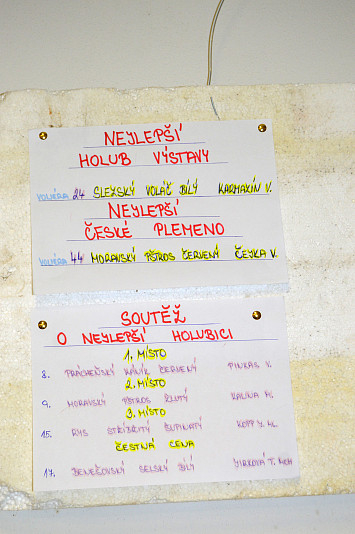 NEJLEPŠÍ
HOLUB VÝSTAVY
VOLIÉRA 24 SLEZSKÝ VOLÁČ BÍLÝ KARMAXÍN V.
NEJLEPŠÍ
ČESKÉ PLEMENO
VOLIÉRA 44 MORAVSKÝ PŠTROS ČERVENÝ ČEJKA V.
SOUTĚŽ
O NEJLEPŠÍ HOLUBICI
1. MÍSTO
8. PRÁCHEŇSKÝ KÁNÍK ČERVENÝ PINKAS V.
2. MÍSTO
9. MORAVSKÝ PŠTROS ŽLUTÝ KALINA
3. MÍSTO
15. RYS STŘÍBŘITÝ ŠUPINATÝ KOPP J. ML.
ČESTNÁ CENA
17. BENEŠOVSKÝ SELSKÝ BÍLÝ JIRKOVÁ T.